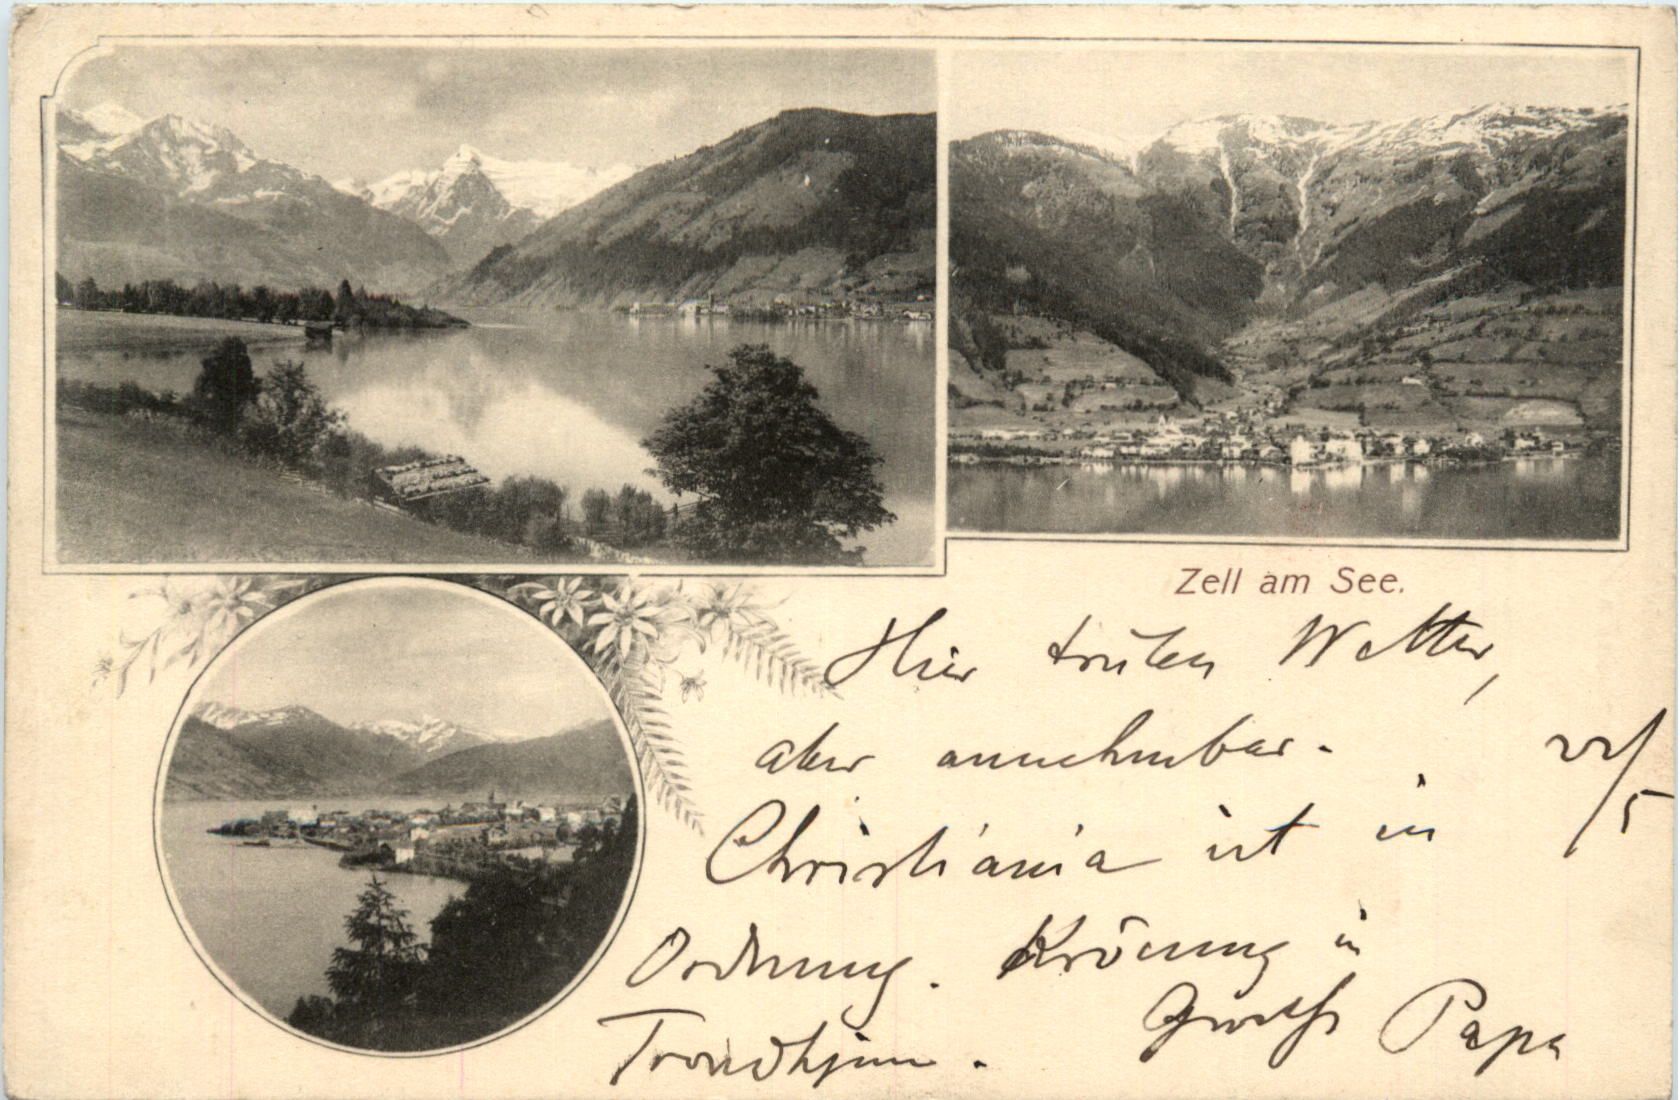 Zell am See.
Hier trüben Wetter,
aber annehmbar.
22/5
Christiania ist in
Ordnung. Krönung in
Trondhjem.
Papa